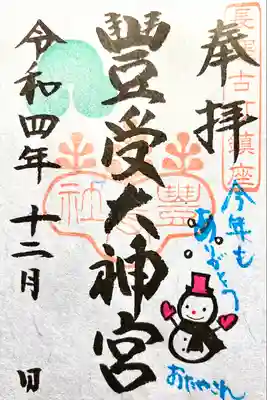 長窪古町鎮座
奉拝
豐受大神宮
令和四年 十二月 日
今年も
ありがとう
おたやさん